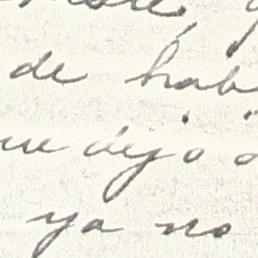 de hab
ue dejó a
ya no